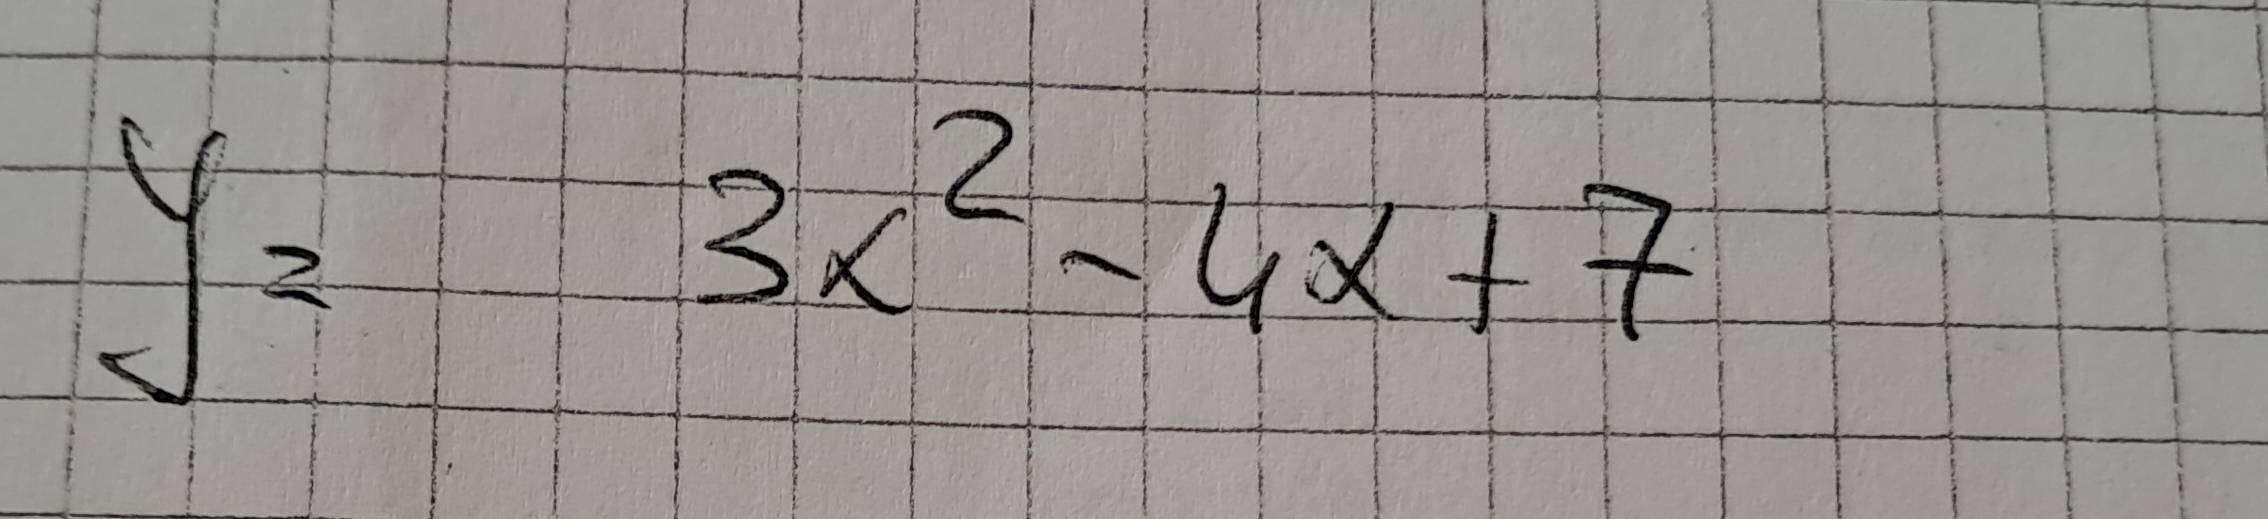 y = 3x² - 4x + 7